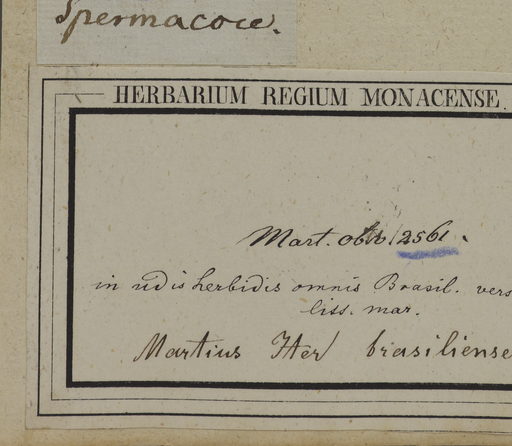 Spermacoce.
HERBARIUM REGIUM MONACENSE.
Mart. obs. 2561.
in udis herbidis omnis Brasil. vers
liss. mar.
Martius Iter brasiliense